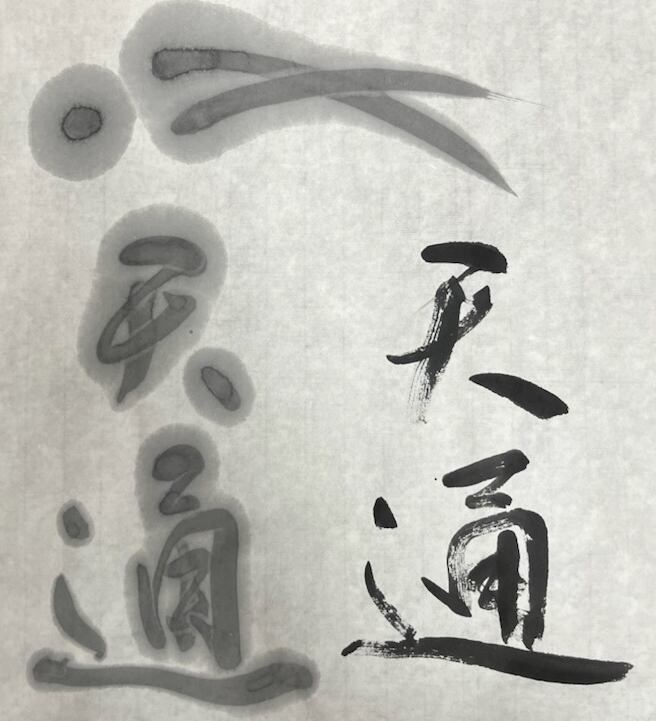 天通
天通